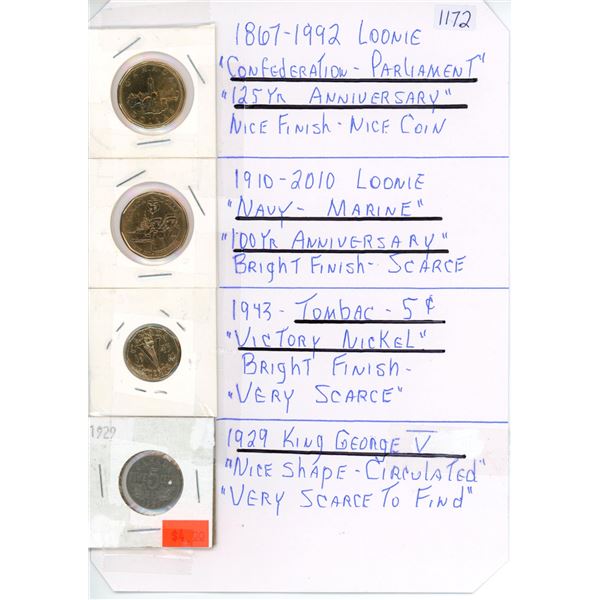 1172
1867-1992 LOONIE
"CONFEDERATION - PARLIAMENT"
"125 YR ANNIVERSARY"
NICE FINISH - NICE COIN
1910-2010 LOONIE
"NAVY - MARINE"
"100 YR ANNIVERSARY"
BRIGHT FINISH - SCARCE
1943 - TOMBAC - 5¢
"VICTORY NICKEL"
BRIGHT FINISH -
"VERY SCARCE"
1929
1929 KING GEORGE V
"NICE SHAPE - CIRCULATED"
"VERY SCARCE TO FIND"